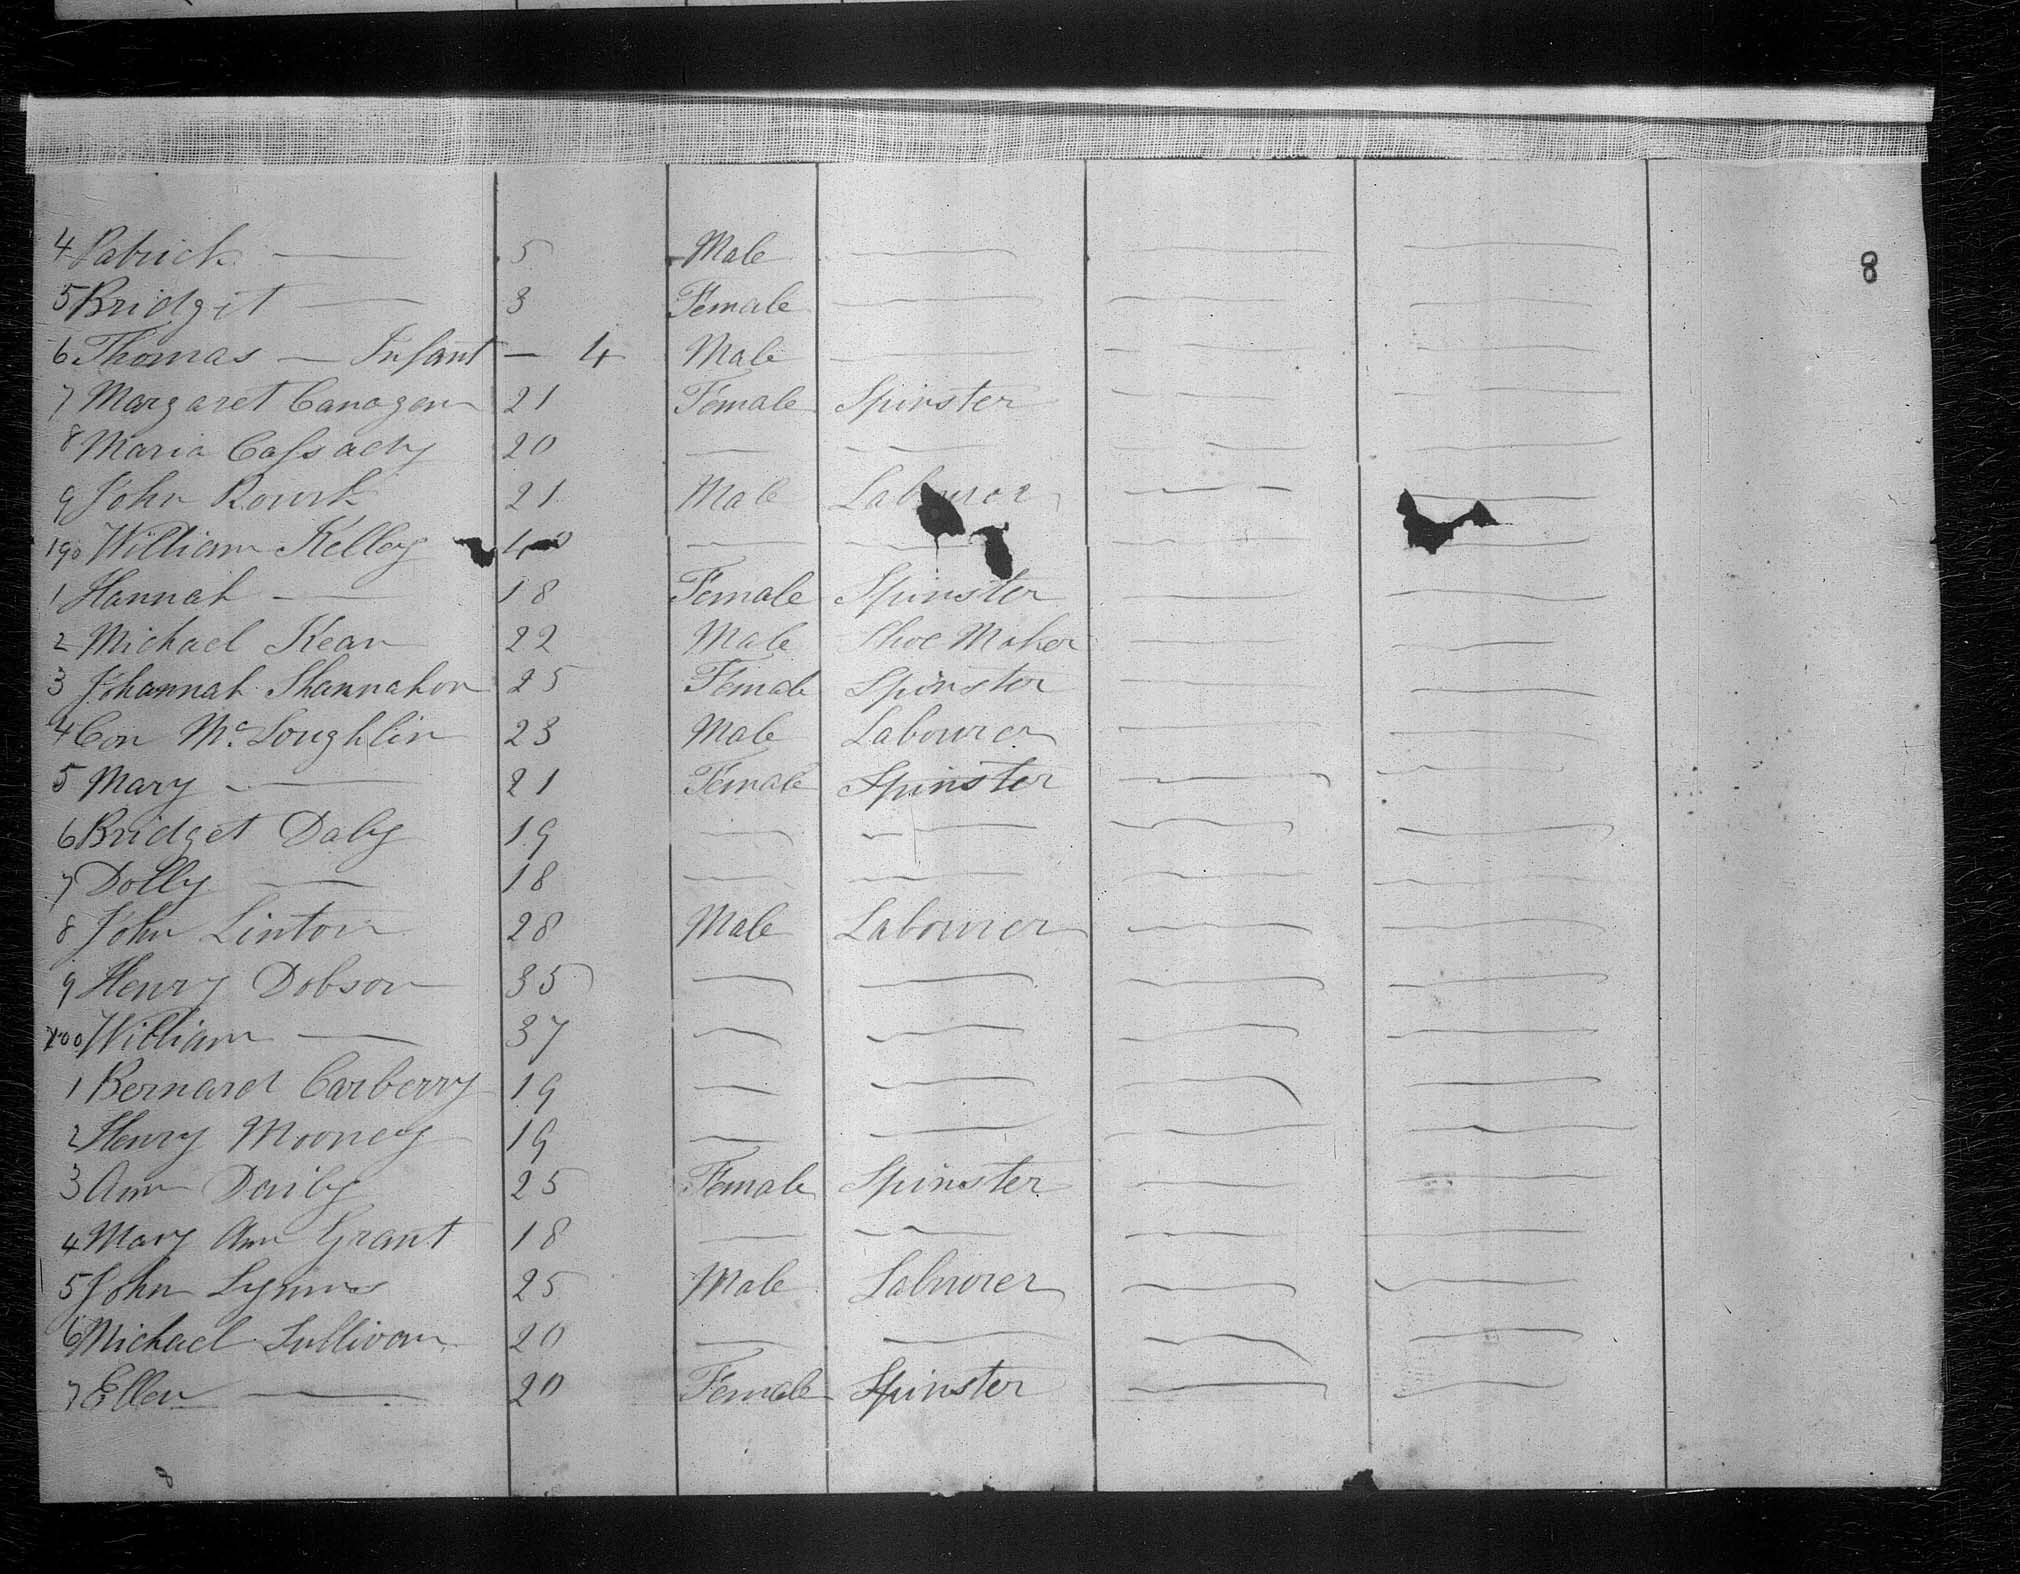 8
4 Patrick — 5 Male — — —
5 Bridgit — 3 Female — — —
6 Thomas — Infant — 4 Male — — —
7 Margaret Canagen 21 Female Spinster — —
8 Maria Cassady 20 — — — —
9 John Rourk 21 Male Labourer — —
190 William Kelley 40 — — — —
1 Hannah — 18 Female Spinster — —
2 Michael Kean 22 Male Shoe Maker — —
3 Johannah Shannahon 25 Female Spinster — —
4 Con Mc Loughlin 23 Male Labourer — —
5 Mary — 21 Female Spinster — —
6 Bridget Daly 19 — — — —
7 Dolly — 18 — — — —
8 John Linton 28 Male Labourer — —
9 Henry Dobson 35 — — — —
200 William — 37 — — — —
1 Bernard Carberry 19 — — — —
2 Henry Mooney 19 — — — —
3 Ann 25 Female Spinster — —
4 Mary Ann Grant 18 — — — —
5 John 25 Male Labourer — —
6 Michael Sullivan 20 — — — —
7 Ellen — 20 Female Spinster — —
8